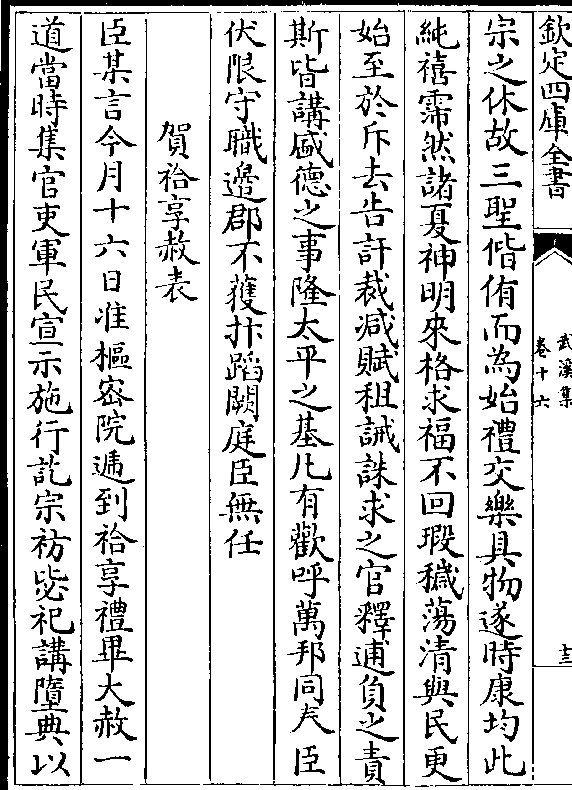 欽定四庫全書
武溪集
卷十六
十三
宗之休故三聖偕侑而為始禮交樂具物遂時康均此
純禧霈然諸夏神明來格求福不回瑕穢蕩清與民更
始至於斥去告訐裁減賦租誡誅求之官釋逋負之責
斯皆講盛德之事隆太平之基凡有歡呼萬邦同夫臣
伏限守職邊郡不獲抃蹈闕庭臣無任
賀祫享赦表
臣某言今月十六日准樞密院逓到祫享禮畢大赦一
道當時集官吏軍民宣示施行訖宗祊毖祀講墮典以